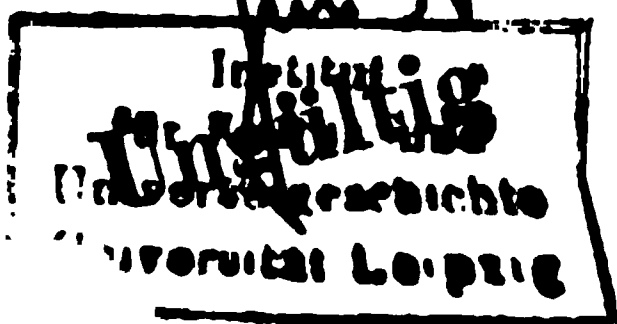 Institut
Ungültig
Universalgeschichte
Universität Leipzig